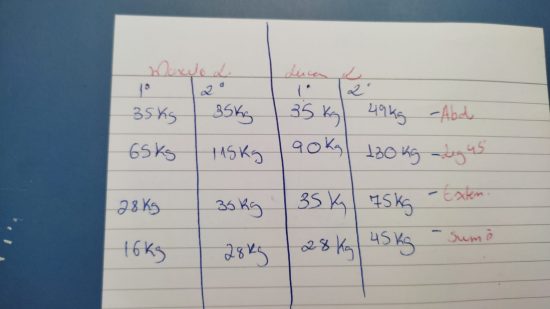 Lucas L.
1° 2° 1° 2°
35Kg 35Kg 35Kg 49Kg - Abd
65Kg 115Kg 90Kg 130Kg - Leg 45
28Kg 35Kg 35Kg 75Kg - Exten.
16Kg 28Kg 28Kg 45Kg - Sumô